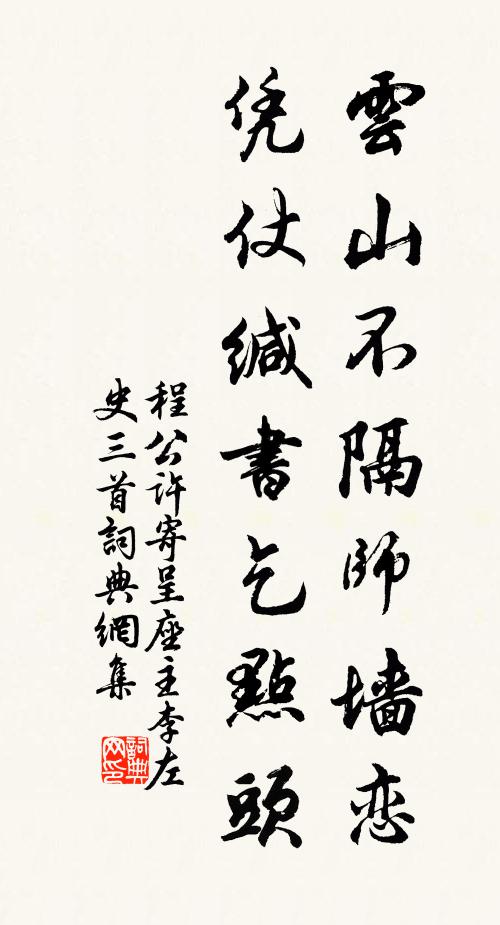 雲山不隔師墙恋
凭仗緘書乞點頭
程公許寄呈座主李左
史三首詞典網集
詞典网印